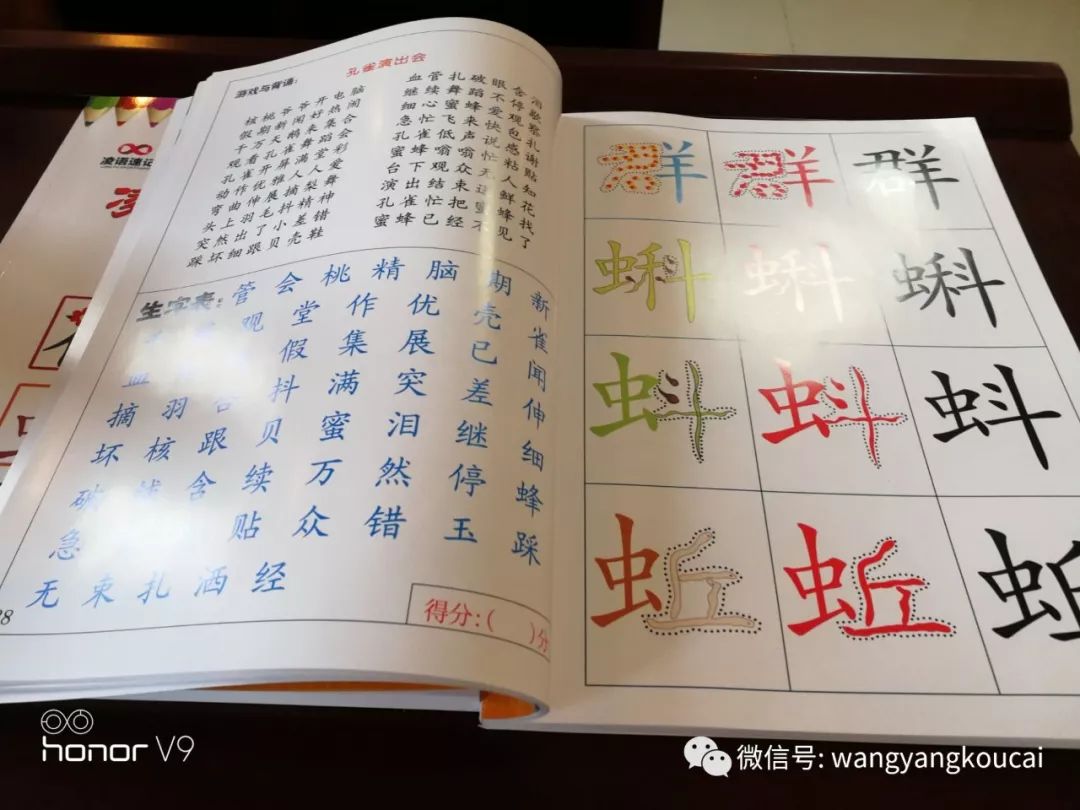 凌语速记
游戏与背诵:
孔雀演出会
核桃爷爷开电脑
假期新闻好热闹
千万天鹅来集合
观看孔雀舞蹈会
孔雀开屏满堂彩
动作优雅人人爱
弯曲伸展摘梨舞
头上羽毛抖精神
突然出了小差错
踩坏细跟贝壳鞋
血管扎破眼含
继续舞蹈不停歇
细心蜜蜂爱观察
急忙飞来快包扎
孔雀低声说感谢
蜜蜂嗡嗡忙粘贴
台下观众无人知
演出结束送鲜花
孔雀忙把蜜蜂找
蜜蜂已经不见了
生字表:
管 会 桃 精 脑 期 新
观 堂 作 优 壳 雀
假 集 展 已 闻
摘 羽 抖 满 突 差 伸
坏 核 跟 贝 蜜 泪 继 细
破 含 续 万 然 停 蜂
急 贴 众 错 玉 踩
无 束 扎 洒 经
得分:( )分
群 群 群
蝌 蝌 蝌
蚪 蚪 蚪
蚯 蚯 蚯
honor V9
微信号: wangyangkoucai